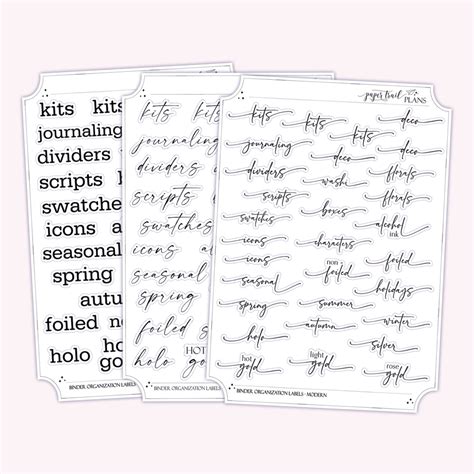 kits kits
journaling
dividers
scripts
swatches
icons a
seasonal
spring
autu
foiled no
holo hot
gold
BINDER ORGANIZATION LABELS
kits kits
journaling
dividers
scripts
swatches
icons
seasonal
spring
foiled
holo HOT
BINDER ORGANIZATION LABELS
paper trail
PLANS
kits kits deco
journaling deco
dividers washi florals
scripts boxes florals
swatches alcohol
ink
icons characters
icons non
foiled foiled
seasonal holidays
spring summer
autumn winter
holo silver
hot
gold
light
gold
rose
gold
BINDER ORGANIZATION LABELS - MODERN